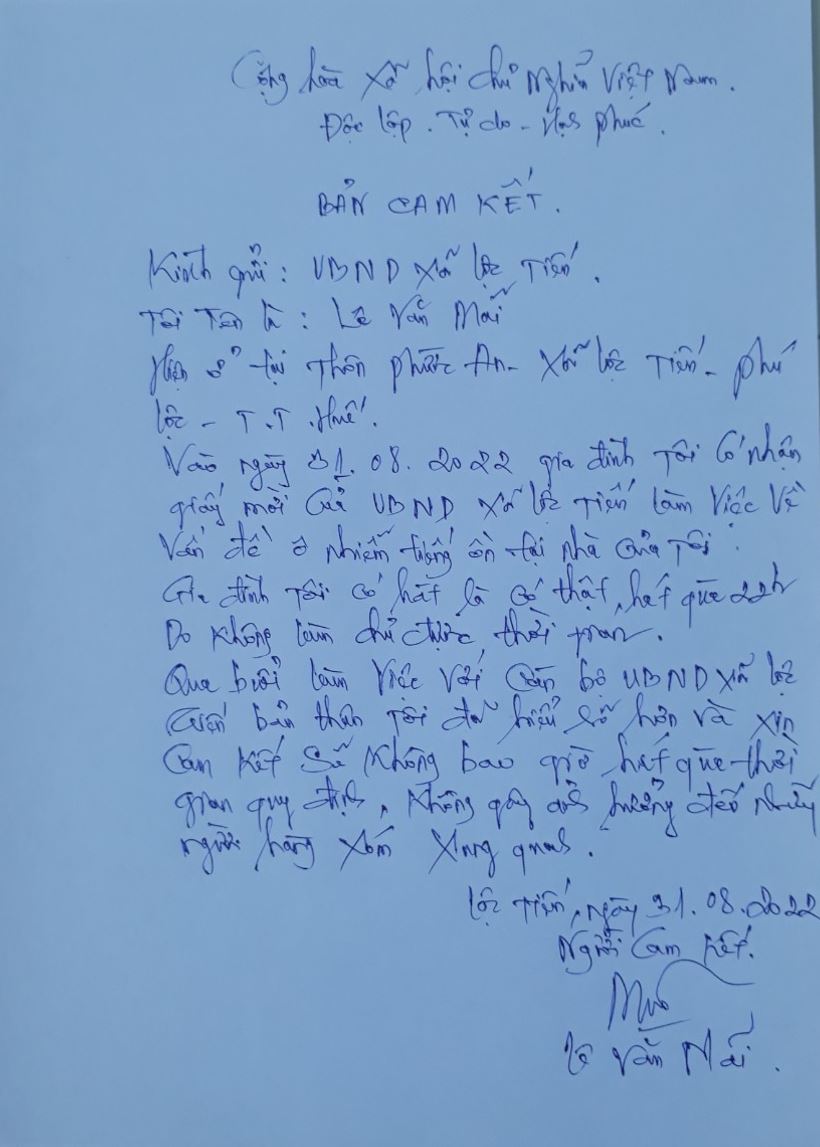 Cộng hòa xã hội chủ Nghĩa Việt Nam.
Độc lập. Tự do - Hạnh phúc.
BẢN CAM KẾT.
Kính gửi: UBND xã lộc Tiến.
Tôi Tên là: Lê Văn Mãi
Hiện ở tại Thôn Phước An - Xã lộc Tiến - phú
lộc - T.T. Huế.
Vào ngày 31.08.2022 gia đình tôi có nhận
giấy mời của UBND xã lộc Tiến làm việc về
vấn đề ô nhiễm tiếng ồn tại nhà của tôi.
Gia đình tôi có hát là có thật, hát quá 22h
Do không làm chủ được thời gian.
Qua buổi làm việc với cán bộ UBND xã lộc
Tiến bản thân tôi đã hiểu rõ hơn và xin
Cam kết sẽ không bao giờ hát quá thời
gian quy định, không gây ảnh hưởng đến những
người hàng xóm xung quanh.
Lộc Tiến, ngày 31.08.2022
Người Cam kết.
Lê Văn Mãi.